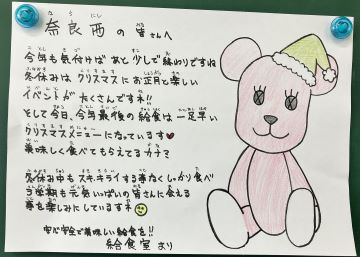 奈良西の皆さんへ
今年も気付けばあと少しで終わりですね
冬休みはクリスマスにお正月と楽しい
イベントがたくさんですネ!!
そして今日、今年最後の給食は一足早い
クリスマスメニューになっています♥
美味しく食べてもらえてるカナ?
冬休み中もスキ・キライする事なくしっかり食べ
3学期も元気いっぱいの皆さんに会える
事を楽しみにしていますネ
安心安全で美味しい給食を!!
給食室より